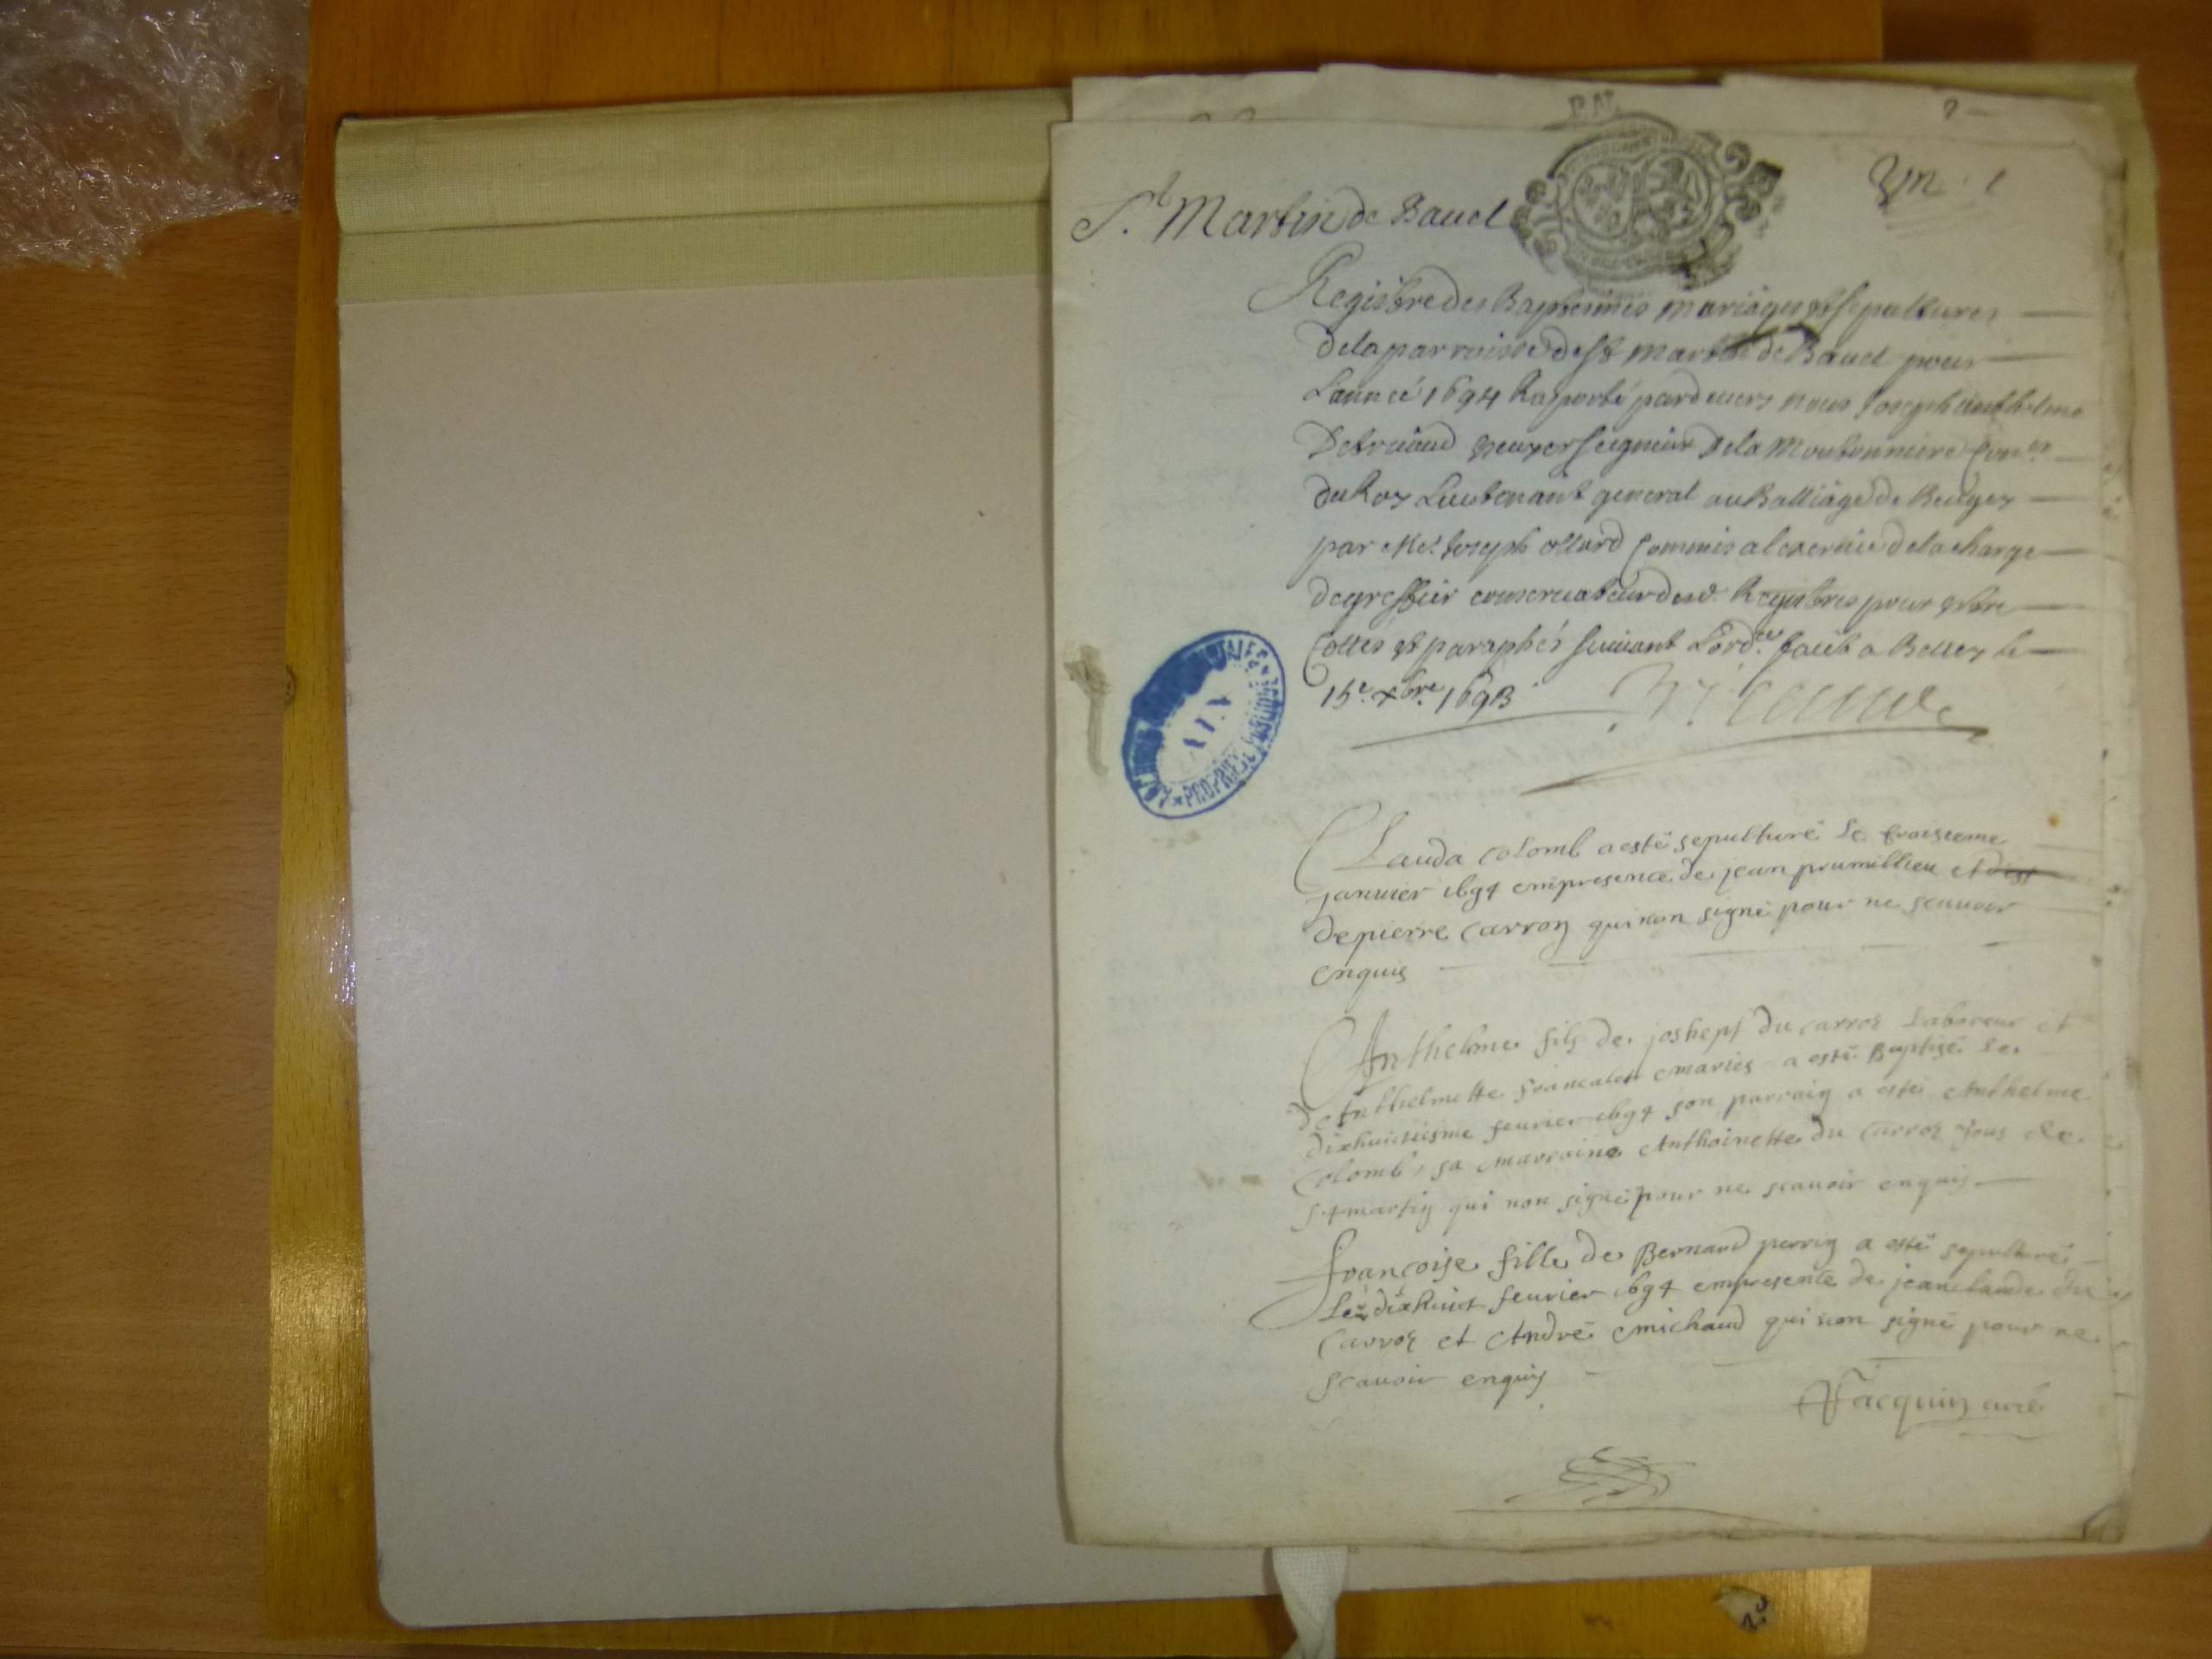 2
P. N.
Un 1
St. Martin de Bavel
Registre des Baptesmes mariages et sepultures
de la parroisse de St martin de Bavel pour
L'année 1694 Raporté pardevers nous Joseph anthelme
escuyer seigneur de la Moutonniere Conser
du Roy Lieutenant general au Balliage de Beugey
par Me. Joseph ollard Commis a lexercice de la charge
de greffier conservateur desd. Registres pour estre
Cottés et paraphés suivant Lordce faict a Belley le
15e. xbre. 1693
Clauda colomb a esté sepulturé le troisieme
januier 1694 empresence de jean prumillieu et
de pierre Carron qui non signé pour ne scauoir
enquis
Anthelme fils de joshept du carroz Laboreur et
de Anthelmette francalet maries a esté Baptizé le
dixhuictiesme feurier 1694 son parrain a esté Anthelme
Colomb, sa marraine Anthoinette du Carroz tous de
St martin qui non signé pour ne scauoir enquis
francoise fille de Bernard perrin a esté sepulturé
Le dixhuict feurier 1694 empresence de jeanclaude du
Carroz et André michaud qui non signé pour ne
scauoir enquis
Jacquin curé
AIN